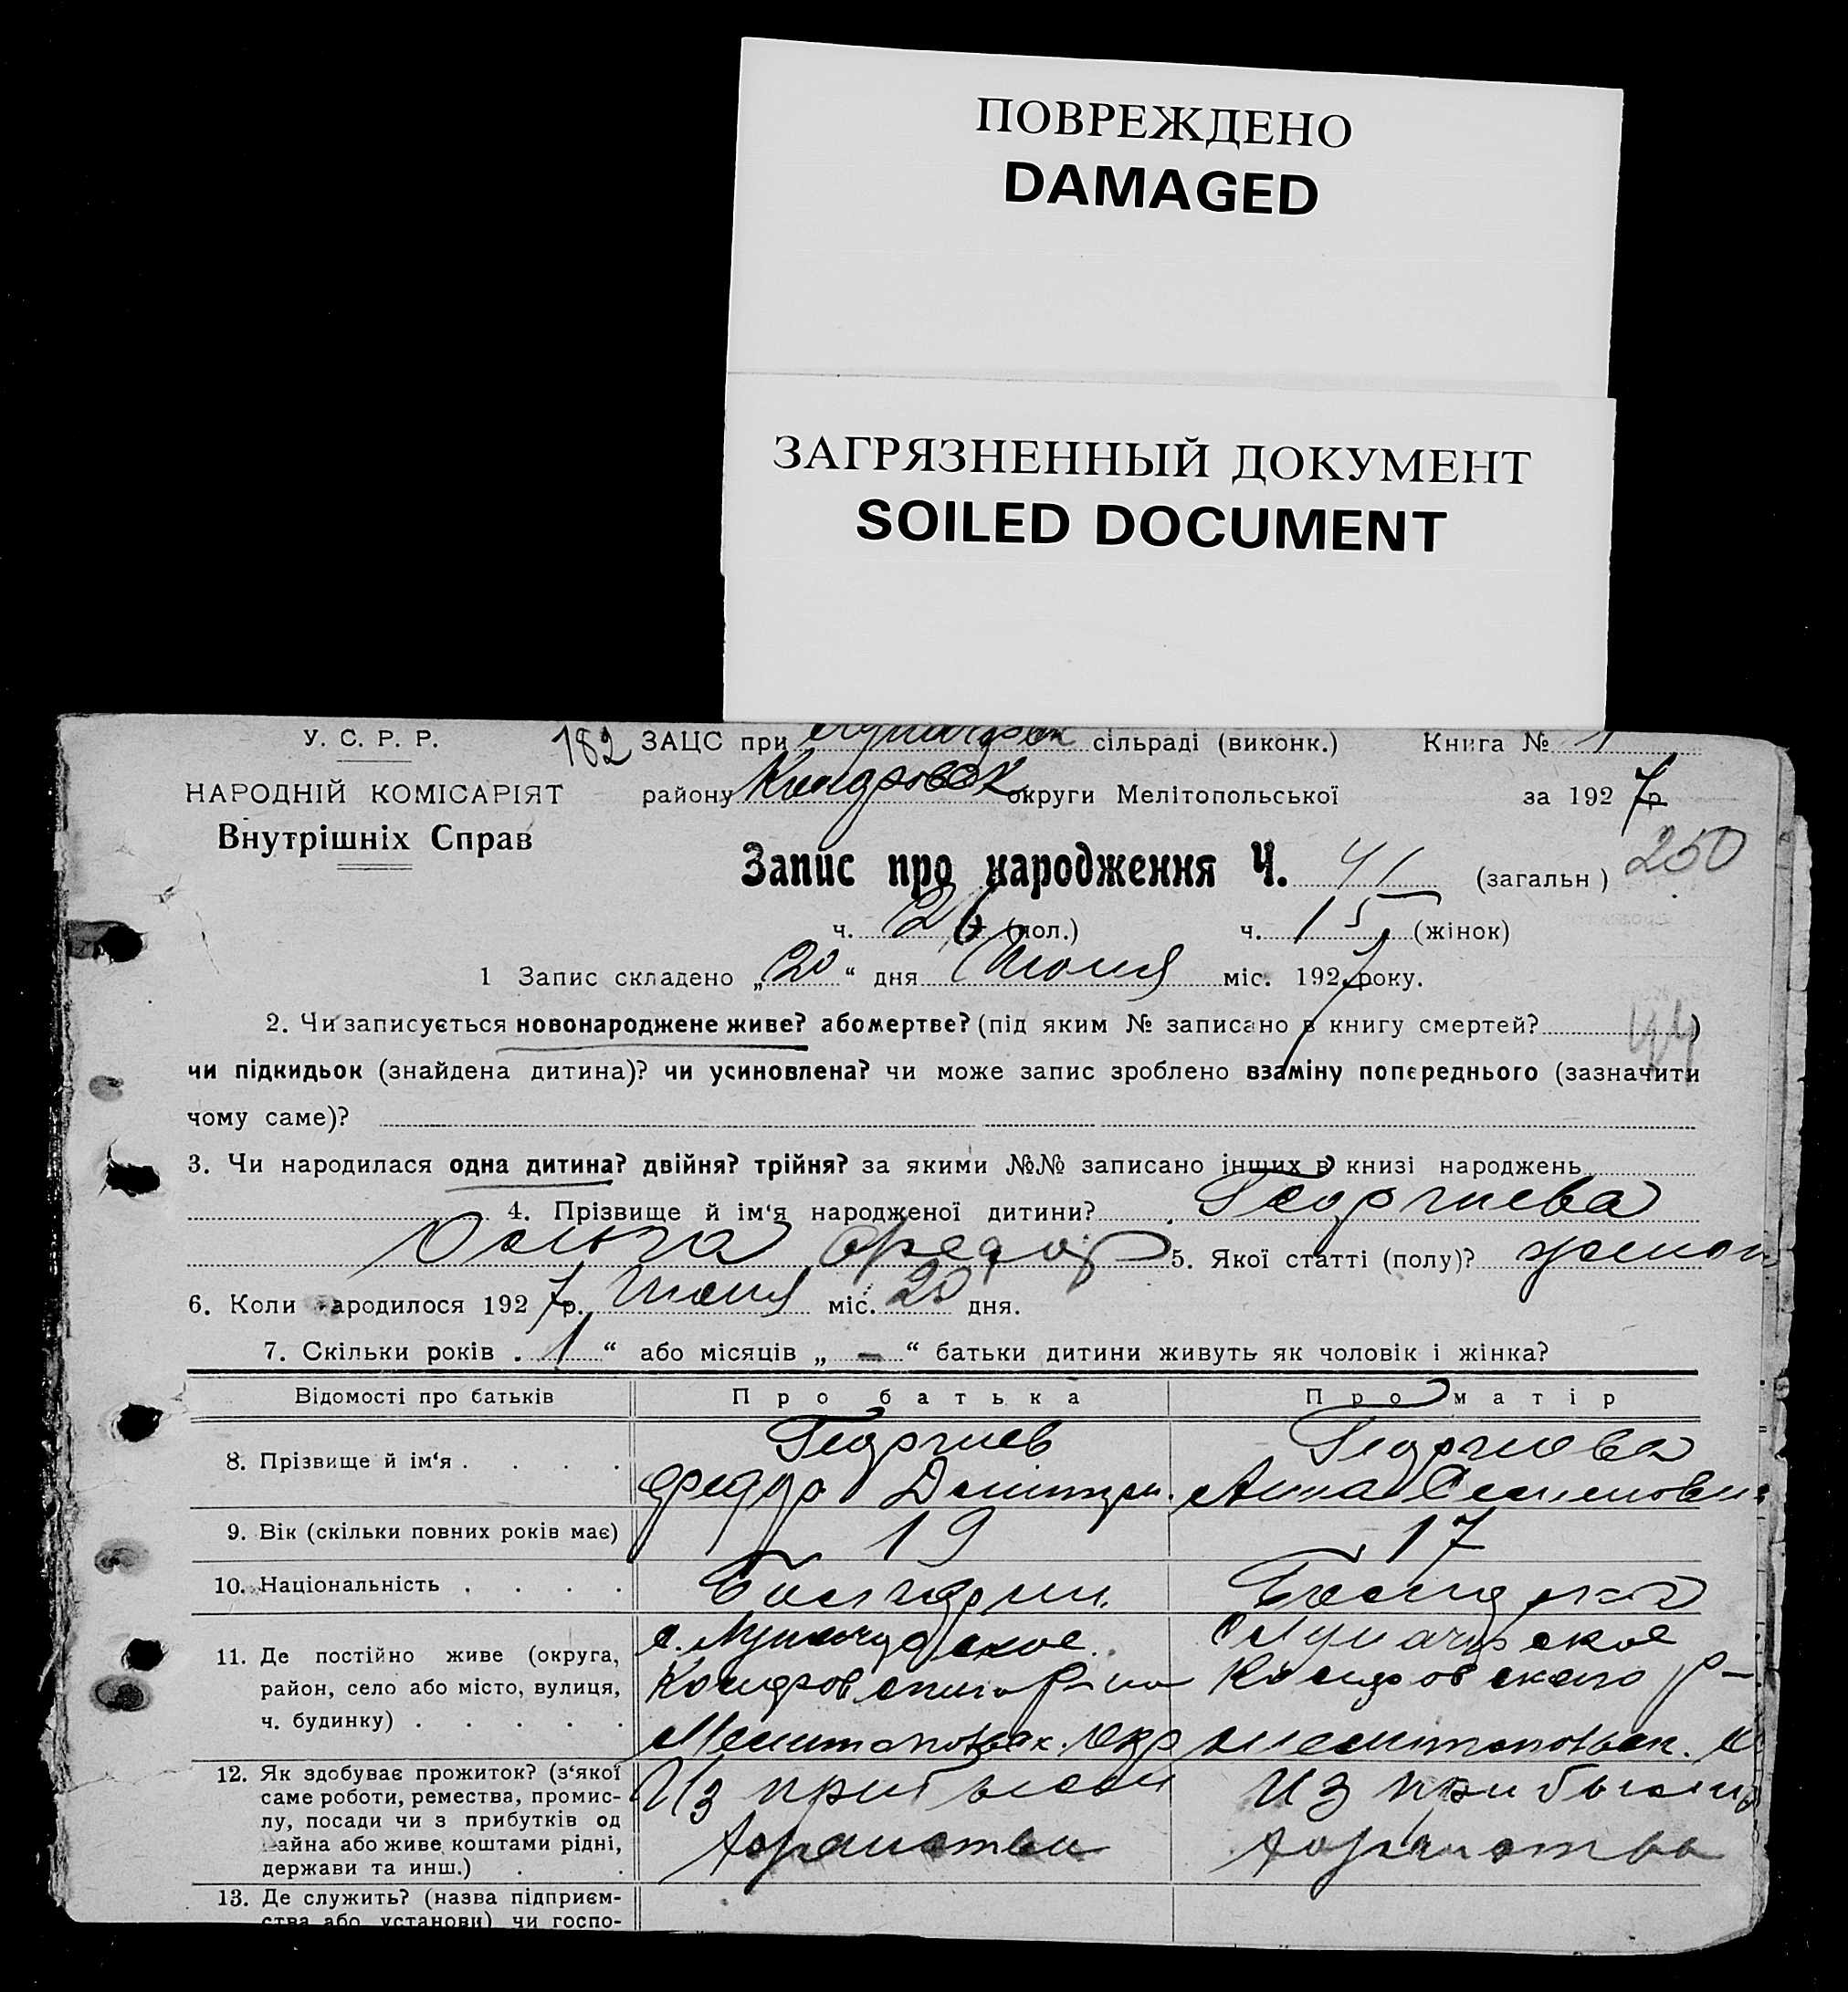 ПОВРЕЖДЕНО
DAMAGED
ЗАГРЯЗНЕННЫЙ ДОКУМЕНТ
SOILED DOCUMENT
У. С. Р. Р.
182 ЗАЦС при сільраді (виконк.) Книга № 1
НАРОДНІЙ КОМІСАРІЯТ
району округи Мелітопольської за 1927 р.
Внутрішніх Справ
Запис про народження Ч. 41 (загальн) 250
ч. 26 (пол.) ч. 15 (жінок)
1 Запис складено „20“ дня Июня міс. 1927 року.
2. Чи записується новонароджене живе? або мертве? (під яким № записано в книгу смертей? )
чи підкидьок (знайдена дитина)? чи усиновлена? чи може запис зроблено взаміну попереднього (зазначити
чому саме)?
3. Чи народилася одна дитина? двійня? трійня? за якими №№ записано інших в книзі народжень
4. Прізвище й ім‘я народженої дитини? Георгиева
Ольга Федор 5. Якої статті (полу)? женск
6. Коли народилося 1927 р. Июня міс. 20 дня.
7. Скільки років 1“ або місяців „ – “ батьки дитини живуть як чоловік і жінка?
Відомості про батьків Про батька Про матір
8. Прізвище й ім‘я . . . . Георгиев Георгиева
Федор Дмитри. Анна Семеновна
9. Вік (скільки повних років має) 19 17
10. Національність . . . . Болгарин. Болгарка
с. Луначарское Луначарское
11. Де постійно живе (округа,
район, село або місто, вулиця,
ч. будинку) . . . . .
Мелитопольск. Окр Мелитопольск.
12. Як здобуває прожиток? (з‘якої
саме роботи, ремества, промис-
лу, посади чи з прибутків од
майна або живе коштами рідні,
держави та инш.) . .
Из прибылей Из прибылей
13. Де служить? (назва підприєм-
ства або установи) чи госпо-